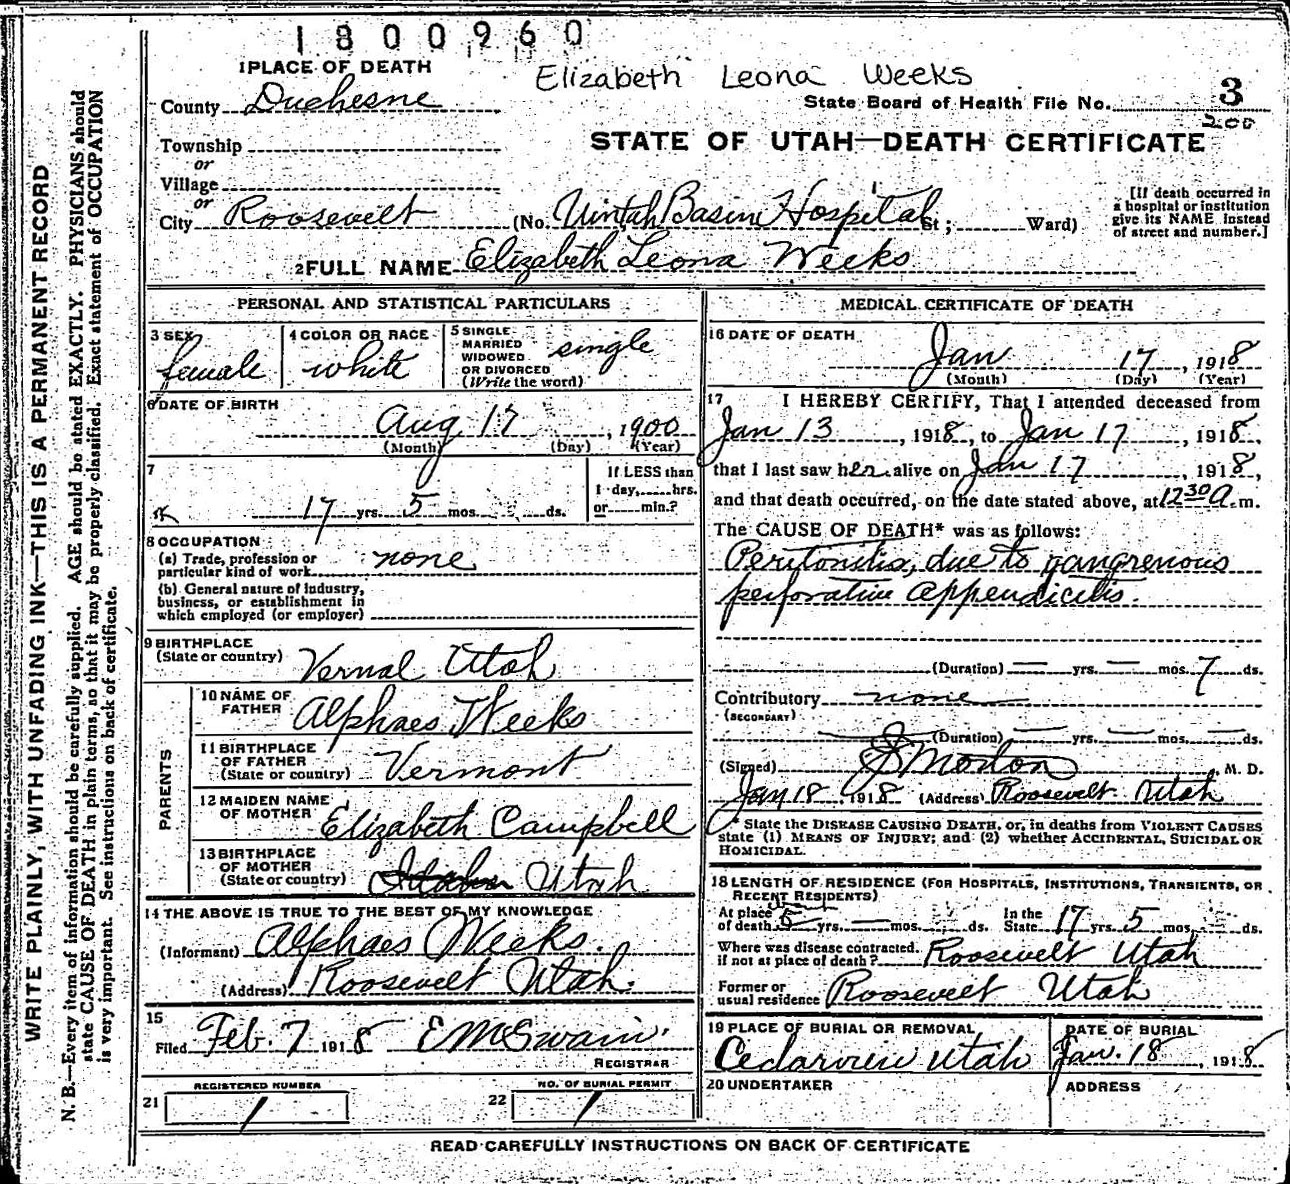 1800960
1 PLACE OF DEATH
Elizabeth Leona Weeks
County Duchesne
State Board of Health File No. 3
STATE OF UTAH—DEATH CERTIFICATE
Township
or
Village
or
City Roosevelt (No. Uintah Basin Hospital St; Ward)
[If death occurred in
a hospital or institution
give its NAME instead
of street and number.]
2 FULL NAME Elizabeth Leona Weeks
PERSONAL AND STATISTICAL PARTICULARS
3 SEX female
4 COLOR OR RACE white
5 SINGLE
MARRIED
WIDOWED
OR DIVORCED
(Write the word) single
6 DATE OF BIRTH
Aug 17, 1900
(Month) (Day) (Year)
7
17 yrs. 5 mos. ds.
If LESS than
1 day, hrs.
or min.?
8 OCCUPATION
(a) Trade, profession or
particular kind of work none
(b) General nature of industry,
business, or establishment in
which employed (or employer)
9 BIRTHPLACE
(State or country) Vernal Utah
PARENTS
10 NAME OF
FATHER Alphaes Weeks
11 BIRTHPLACE
OF FATHER
(State or country) Vermont
12 MAIDEN NAME
OF MOTHER Elizabeth Campbell
13 BIRTHPLACE
OF MOTHER
(State or country) Utah
14 THE ABOVE IS TRUE TO THE BEST OF MY KNOWLEDGE
(Informant) Alphaes Weeks.
(Address) Roosevelt Utah.
15
Filed Feb. 7 1918 E McSwain.
REGISTRAR
REGISTERED NUMBER
21 1
NO. OF BURIAL PERMIT
22 1
MEDICAL CERTIFICATE OF DEATH
16 DATE OF DEATH
Jan 17, 1918
(Month) (Day) (Year)
17 I HEREBY CERTIFY, That I attended deceased from
Jan 13, 1918, to Jan 17, 1918,
that I last saw her alive on Jan 17, 1918,
and that death occurred, on the date stated above, at 12 30 A. m.
The CAUSE OF DEATH* was as follows:
Peritonitis, due to gangrenous
perforative appendicitis.
(Duration) — yrs. — mos. 7 ds.
Contributory none
(SECONDARY)
(Duration) — yrs. — mos. — ds.
(Signed) J S Morton M. D.
Jan 18 1918 (Address) Roosevelt Utah
* State the DISEASE CAUSING DEATH, or, in deaths from VIOLENT CAUSES
state (1) MEANS OF INJURY; and (2) whether ACCIDENTAL, SUICIDAL OR
HOMICIDAL.
18 LENGTH OF RESIDENCE (FOR HOSPITALS, INSTITUTIONS, TRANSIENTS, OR
RECENT RESIDENTS)
At place
of death 5 yrs. — mos. ds.
In the
State 17 yrs. 5 mos. — ds.
Where was disease contracted.
if not at place of death? Roosevelt Utah
Former or
usual residence Roosevelt Utah
19 PLACE OF BURIAL OR REMOVAL
Cedarview Utah
DATE OF BURIAL
Jan. 18, 1918
20 UNDERTAKER
ADDRESS
READ CAREFULLY INSTRUCTIONS ON BACK OF CERTIFICATE
WRITE PLAINLY, WITH UNFADING INK—THIS IS A PERMANENT RECORD
N. B.—Every item of information should be carefully supplied. AGE should be stated EXACTLY. PHYSICIANS should
state CAUSE OF DEATH in plain terms, so that it may be properly classified. Exact statement of OCCUPATION
is very important. See instructions on back of certificate.